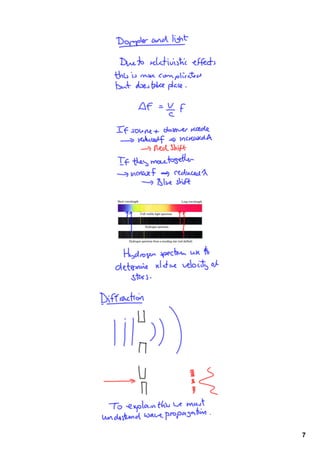 Doppler and light
Due to relativistic effects
this is more complicated
but does take place.
ΔF = v/c f
If source + observer recede
→ reduced f ⇒ increased λ
→ Red Shift
If they move together
→ increase f ⇒ reduced λ
→ Blue shift
Short wavelength Long wavelength
Full visible light spectrum
Hydrogen spectrum
Hydrogen spectrum from a receding star (red shifted)
Hydrogen spectrum use to
determine relative velocity of
stars.
Diffraction
To explain this we must
understand wave propagation.
7